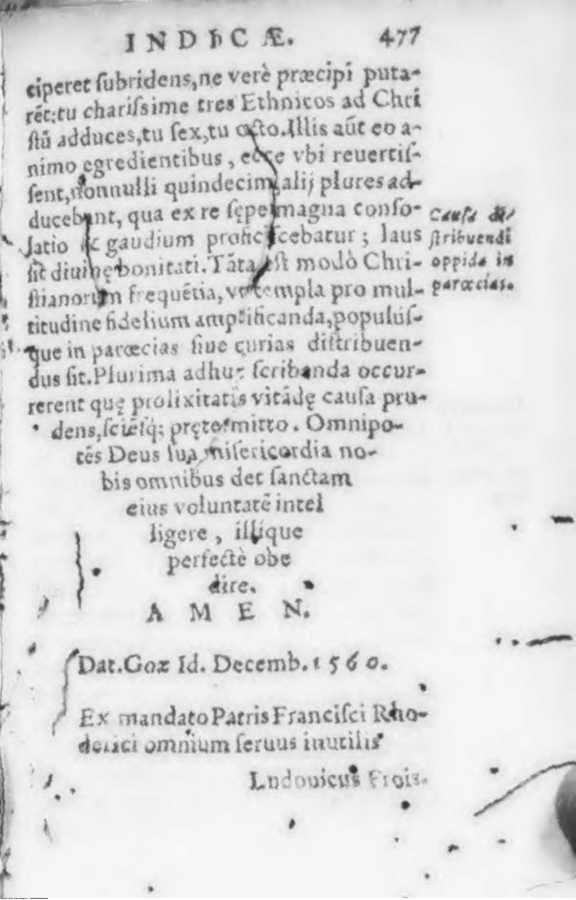 INDICÆ. 477
ciperet ſubridens, ne verè præcipi puta-
rēt: tu chariſsime tres Ethnicos ad Chri
ſtū adduces, tu ſex, tu octo. Illis aūt eo a-
nimo egredientibus, ecce vbi reuertiſ-
ſent, nonnulli quindecim, alij plures ad-
ducebant, qua ex re ſępe magna conſo-
latio & gaudium proficiſcebatur; laus
ſit diuinę bonitati. Tāta eſt modò Chri-
ſtianorum frequētia, vt templa pro mul-
titudine fidelium amplificanda, populuſ-
que in parœcias ſiue curias diſtribuen-
dus ſit. Plurima adhuc ſcribenda occur-
rerent quę prolixitatis vitādę cauſa pru-
dens, ſciēſq; prętermitto. Omnipo-
tēs Deus ſua miſericordia no-
bis omnibus det ſanctam
eius voluntatē intel
ligere, illique
perfectè obe
dire.
AMEN.
Cauſa di-
ſtribuendi
oppida in
parœcias.
Dat. Goæ Id. Decemb. 1560.
Ex mandato Patris Franciſci Rho-
derici omnium ſeruus inutilis
Ludouicus Frois.